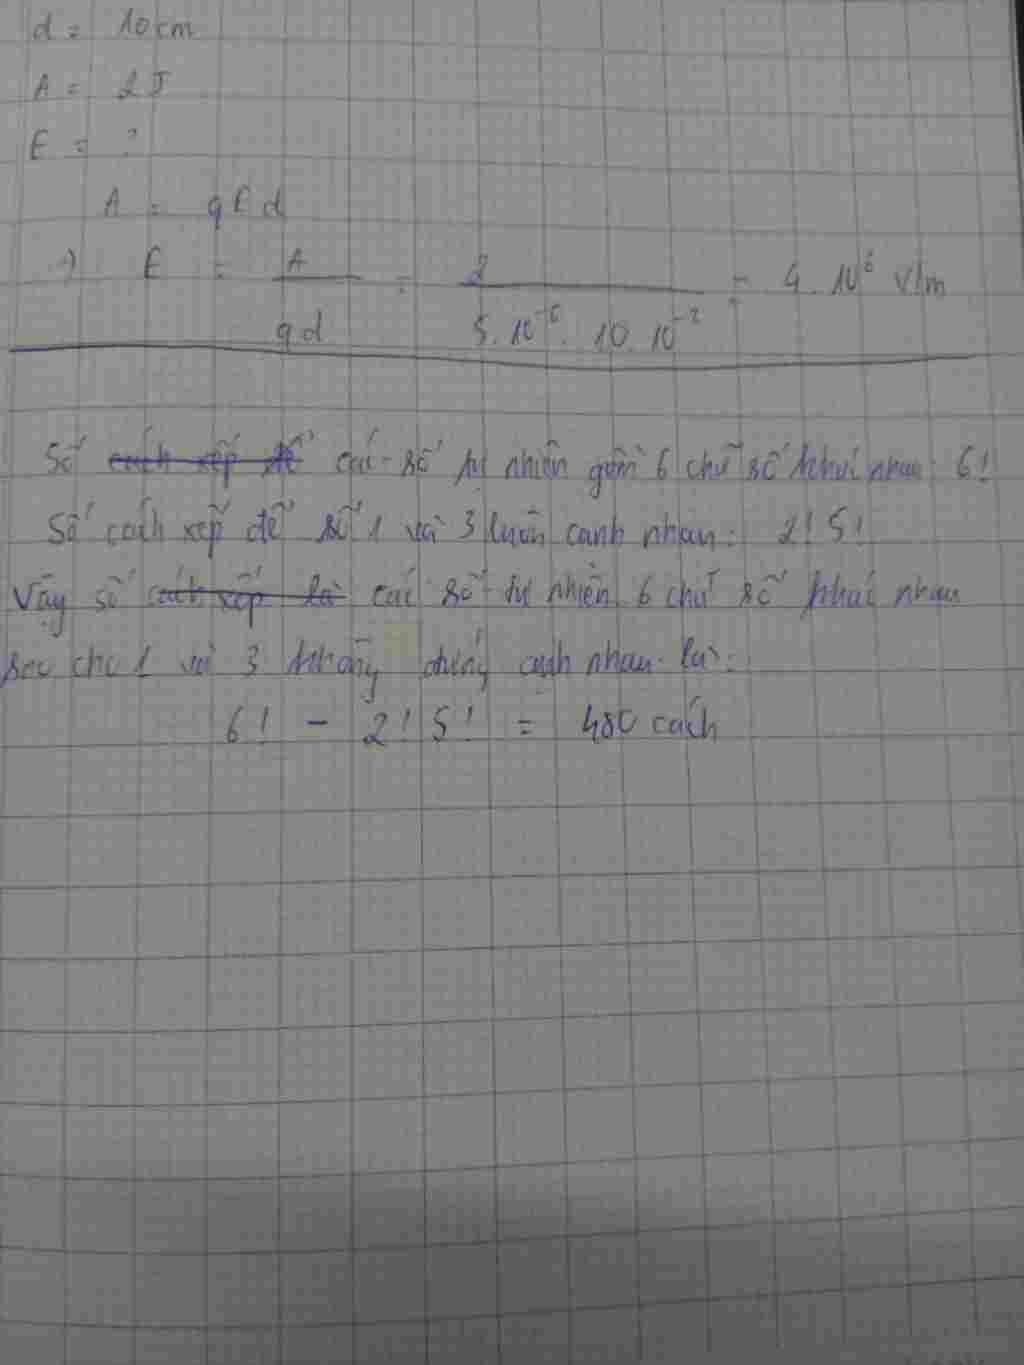 d = 10cm
A = 2J
E = ?
A = qEd
=) E = A / qd = 2 / 5.10^-6 . 10.10^-2 = 4.10^6 V/m
Số cách xếp để các số tự nhiên gồm 6 chữ số khác nhau: 6!
Số cách xếp để số 1 và 3 luôn cạnh nhau: 2!5!
Vậy số cách xếp là các số tự nhiên 6 chữ số khác nhau
sao cho 1 và 3 không đứng cạnh nhau là:
6! - 2!5! = 480 cách